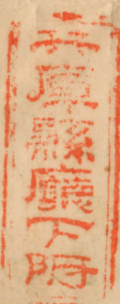 兵庫縣廰下附